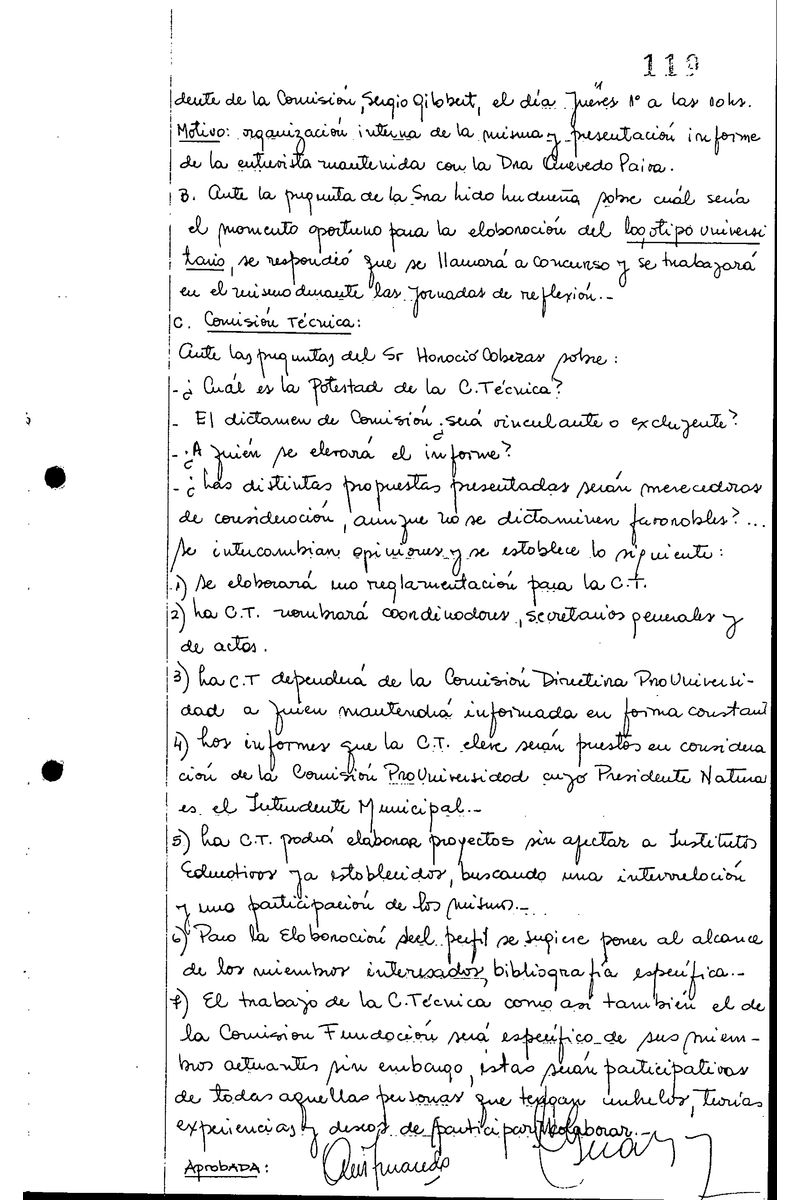 119
dente de la Comisión, Sergio Gilbert, el día Jueves 1º a las 10hs.
Motivo: organización interna de la misma y presentación informe
de la entrevista mantenida con la Dra Quevedo Paiva.
B. Ante la pregunta de la Sra sobre cuál sería
el momento oportuno para la elaboración del logotipo universi
tario, se respondió que se llamará a concurso y se trabajará
en el mismo durante las Jornadas de reflexión.-
C. Comisión Técnica:
Ante las preguntas del Sr Horacio Cabezas sobre:
-¿ Cuál es la Potestad de la C.Técnica?
- El dictamen de Comisión ¿será vinculante o excluyente?
-¿A quién se elevará el informe?
-¿ Las distintas propuestas presentadas serán merecedoras
de consideración, aunque no se dictaminen favorables?...
Se intercambian opiniones y se establece lo siguiente:
1) Se elaborará una reglamentación para la C.T.
2) La C.T. nombrará coordinadores, secretarios generales y
de actas.
3) La C.T dependerá de la Comisión Directiva ProUniversi-
dad a quien mantendrá informada en forma constant
4) Los informes que la C.T. eleve serán puestos en considera
ción de la Comisión ProUniversidad cuyo Presidente Natura
es el Intendente Municipal.-
5) La C.T. podrá elaborar proyectos sin afectar a Institutos
Educativos ya establecidos, buscando una interrelación
y una participación de los mismos.-
6) Para la Elaboración del perfil se sugiere poner al alcance
de los miembros interesados, bibliografía específica.-
7) El trabajo de la C.Técnica como así también el de
la Comision Fundación será específico de sus miem-
bros actuantes sin embargo, éstas serán participativas
de todas aquellas personas que tengan anhelos, teorías
experiencias y deseos de participar y colaborar.-
APROBADA: